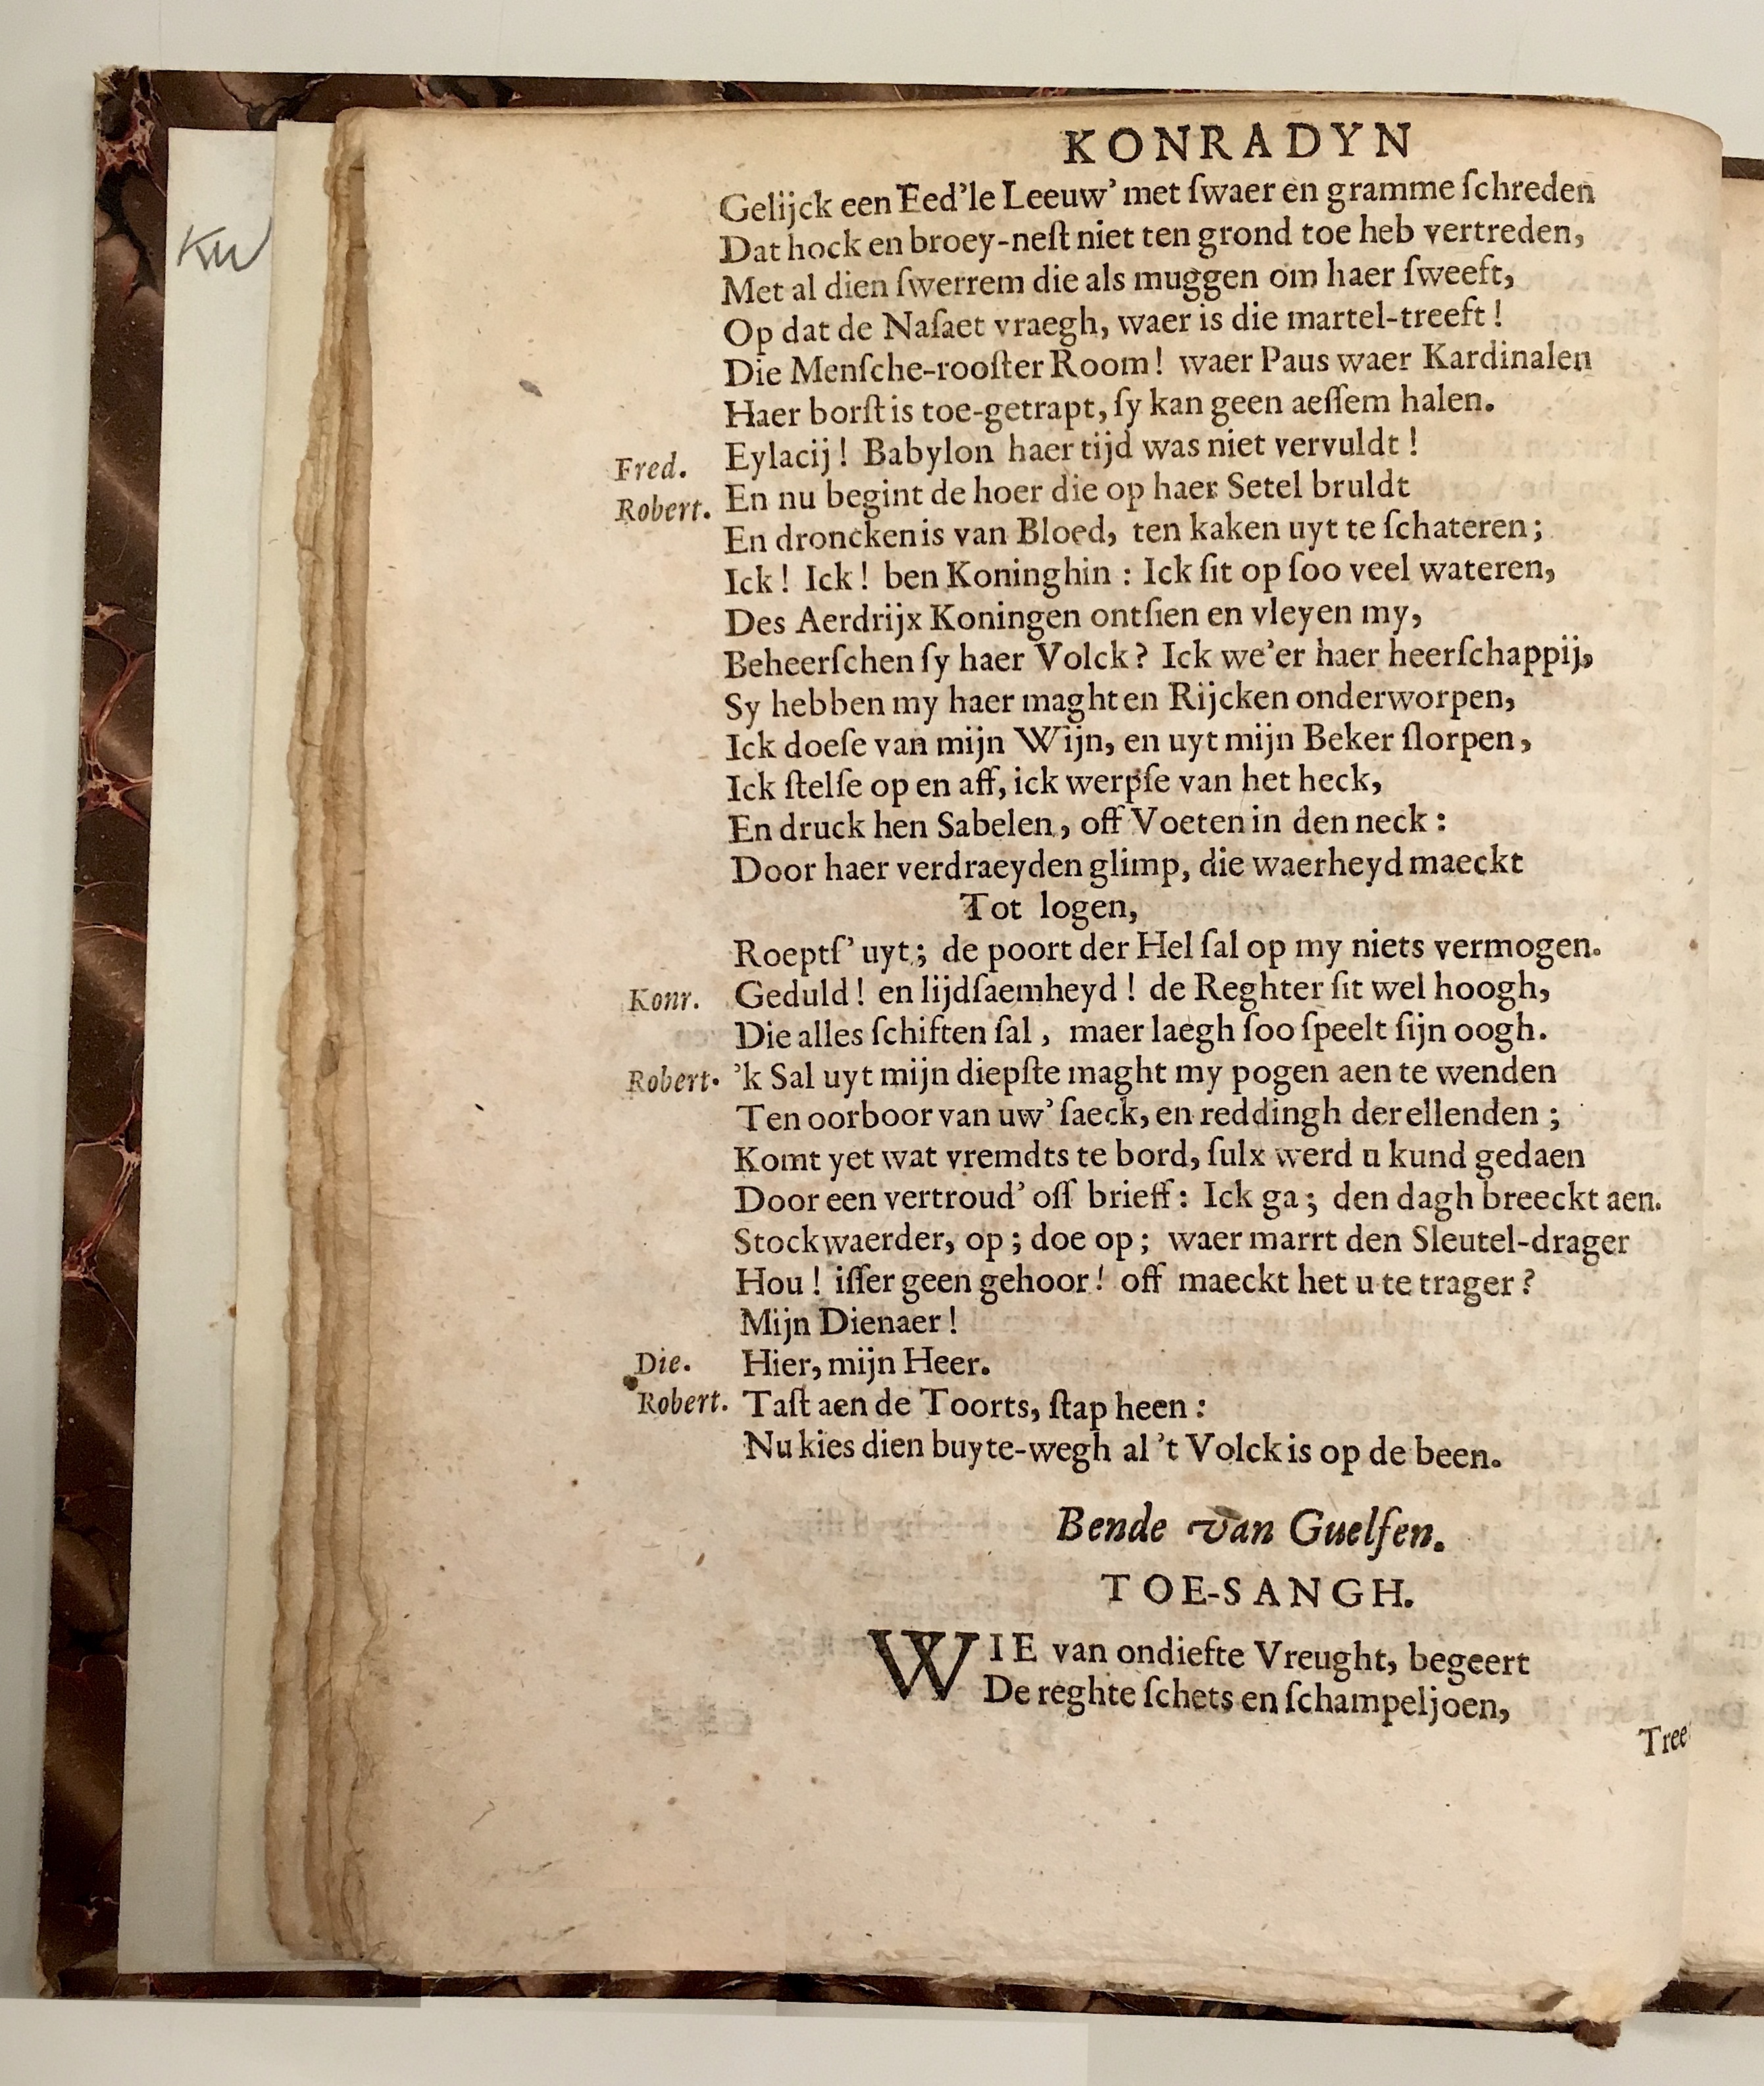 KONRADYN
KW
Gelijck een Eed’le Leeuw’ met ſwaer en gramme ſchreden
Dat hock en broey-neſt niet ten grond toe heb vertreden,
Met al dien ſwerrem die als muggen om haer ſweeft,
Op dat de Naſaet vraegh, waer is die martel-treeft !
Die Menſche-rooſter Room ! waer Paus waer Kardinalen
Haer borſt is toe-getrapt, ſy kan geen aeſſem halen.
Fred. Eylacij ! Babylon haer tijd was niet vervuldt !
Robert. En nu begint de hoer die op haer Setel bruldt
En droncken is van Bloed, ten kaken uyt te ſchateren ;
Ick ! Ick ! ben Koninghin : Ick ſit op ſoo veel wateren,
Des Aerdrijx Koningen ontſien en vleyen my,
Beheerſchen ſy haer Volck ? Ick we’er haer heerſchappij,
Sy hebben my haer maght en Rijcken onderworpen,
Ick doeſe van mijn Wijn, en uyt mijn Beker ſlorpen,
Ick ſtelſe op en aff, ick werpſe van het heck,
En druck hen Sabelen, off Voeten in den neck :
Door haer verdraeyden glimp, die waerheyd maeckt
Tot logen,
Roeptſ’ uyt ; de poort der Hel ſal op my niets vermogen.
Konr. Geduld ! en lijdſaemheyd ! de Reghter ſit wel hoogh,
Die alles ſchiften ſal , maer laegh ſoo ſpeelt ſijn oogh.
Robert. ’k Sal uyt mijn diepſte maght my pogen aen te wenden
Ten oorboor van uw’ ſaeck, en reddingh der ellenden ;
Komt yet wat vremdts te bord, ſulx werd u kund gedaen
Door een vertroud’ oſſ brieff : Ick ga ; den dagh breeckt aen.
Stockwaerder, op ; doe op ; waer marrt den Sleutel-drager
Hou ! iſſer geen gehoor ! off maeckt het u te trager ?
Mijn Dienaer !
Die. Hier, mijn Heer.
Robert. Taſt aen de Toorts, ſtap heen :
Nu kies dien buyte-wegh al ’t Volck is op de been.
Bende van Guelfen.
TOE-SANGH.
WIE van ondiefte Vreught, begeert
De reghte ſchets en ſchampeljoen,
Tree